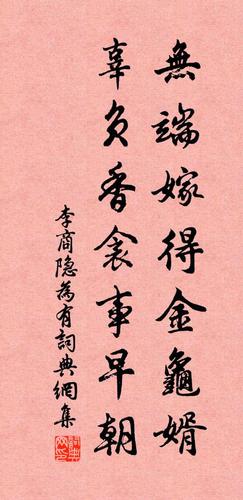 無端嫁得金龜婿
辜負香衾事早朝
李商隐為有詞典網集